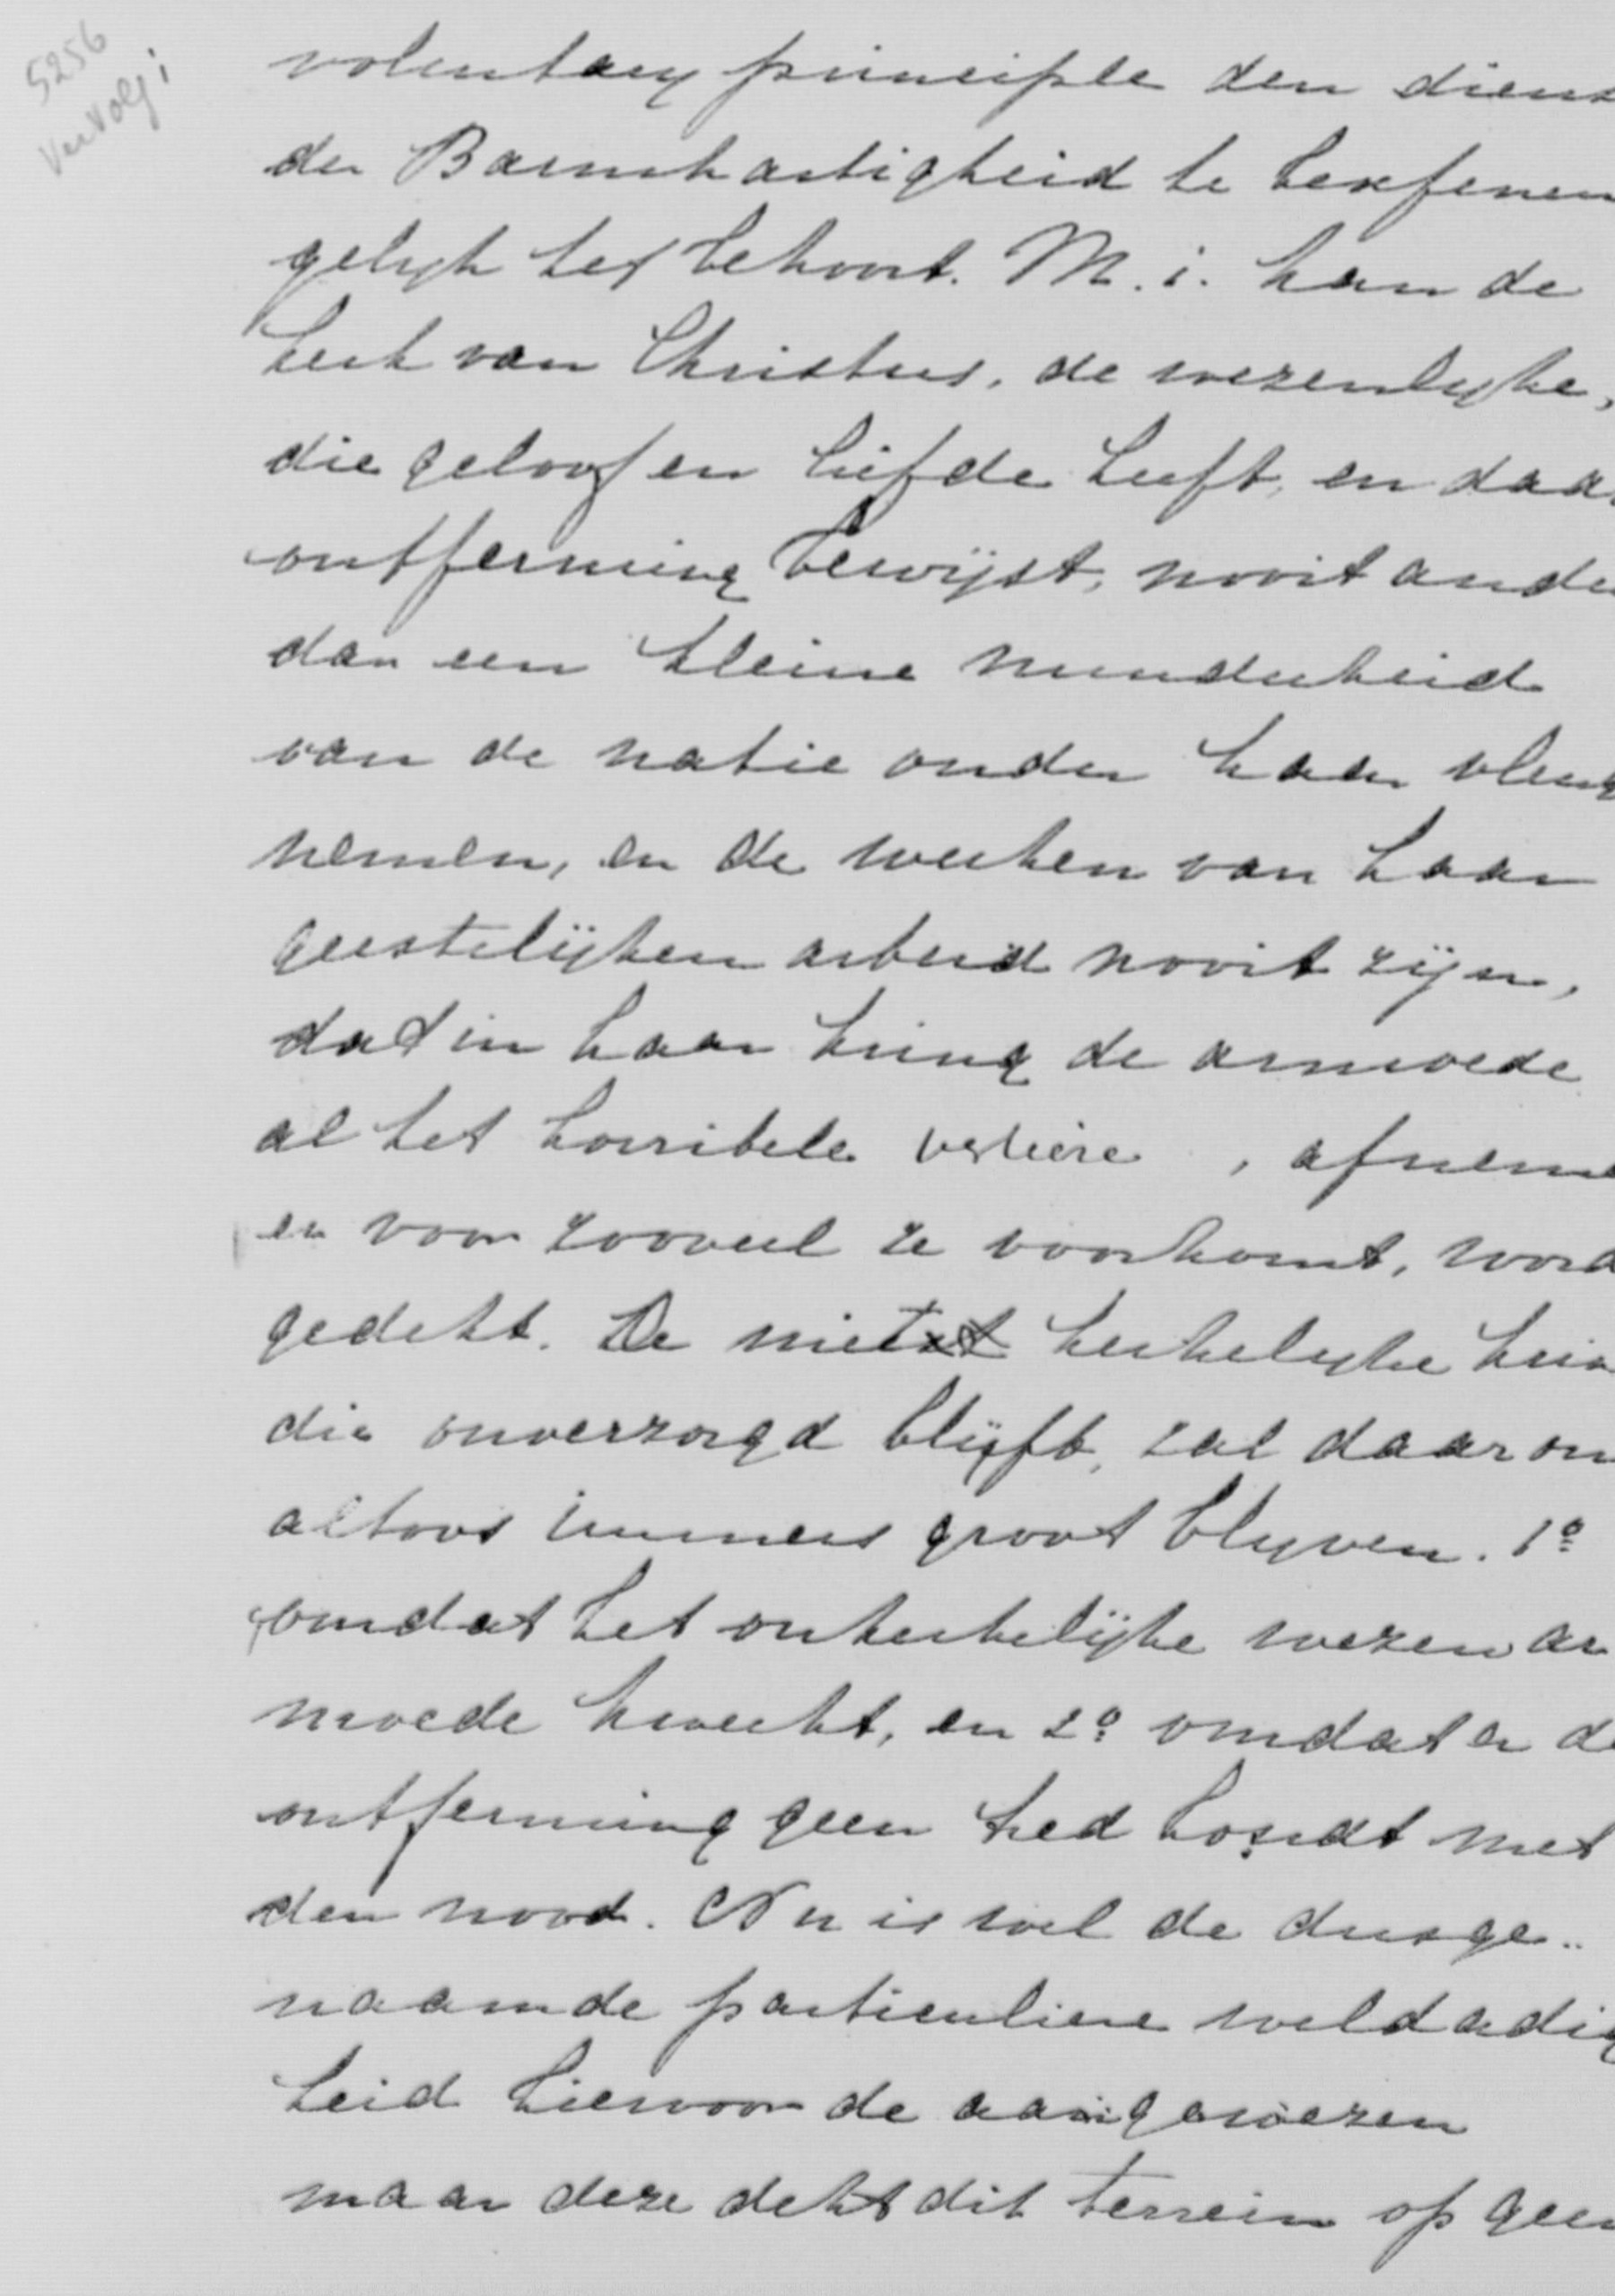 5256
Vervolg i
voluntary principle den diens
der Barmhartigheid te beoefenen
gelyk het behoort. M. i. kan de
kerk van Christus, de wezenlyke,
die geloof en liefde heeft, en daar
ontferming bewijst, nooit ander
dan een kleine minderheid
van de natie onder haar vleug
nemen, en de werken van haar
geestelijken arbeid nooit zijn,
dat in haar kring de armoede
al het horribele verliere , afneme
en voor zooveel ze voorkomt, word
gedekt. De niet kerkelyke krin
die onverzorgd blijft, zal daarom
altoos immers groot blyven. 1º
omdat het onkerkelijke wezen ar
moede kweekt, en 2º omdat er de
ontferming geen tred houdt met
den nood. Nu is wel de dusge..
naamde particuliere weldadig
heid hiervoor de aangewezen
maar deze dekt dit terrein op geen